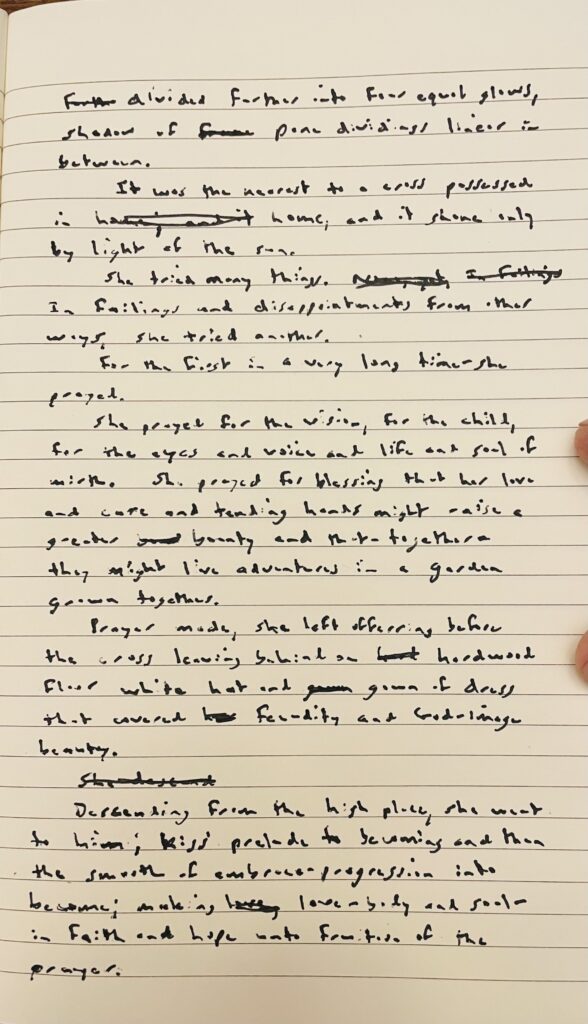 divided further into four equal glows,
shadow of pane dividings linear in
between.
It was the nearest to a cross possessed
in home, and it shone only
by light of the sun.
She tried many things.
In failings and disappointments from other
ways, she tried another.
For the first in a very long time-she
prayed.
She prayed for the vision, for the child,
for the eyes and voice and life and soul of
mirth. She prayed for blessing that her love
and care and tending hands might raise a
greater bounty and that-together-
they might live adventures in a garden
grown together.
Prayer made, she left offering before
the cross leaving behind on hardwood
floor white hat and gown of dress
that covered fecundity and God-image
beauty.
Descending from the high place, she went
to him; kiss prelude to becoming and then
the smooth of embrace-progression into
become; making love-body and soul-
in faith and hope unto fruition of the
prayer.